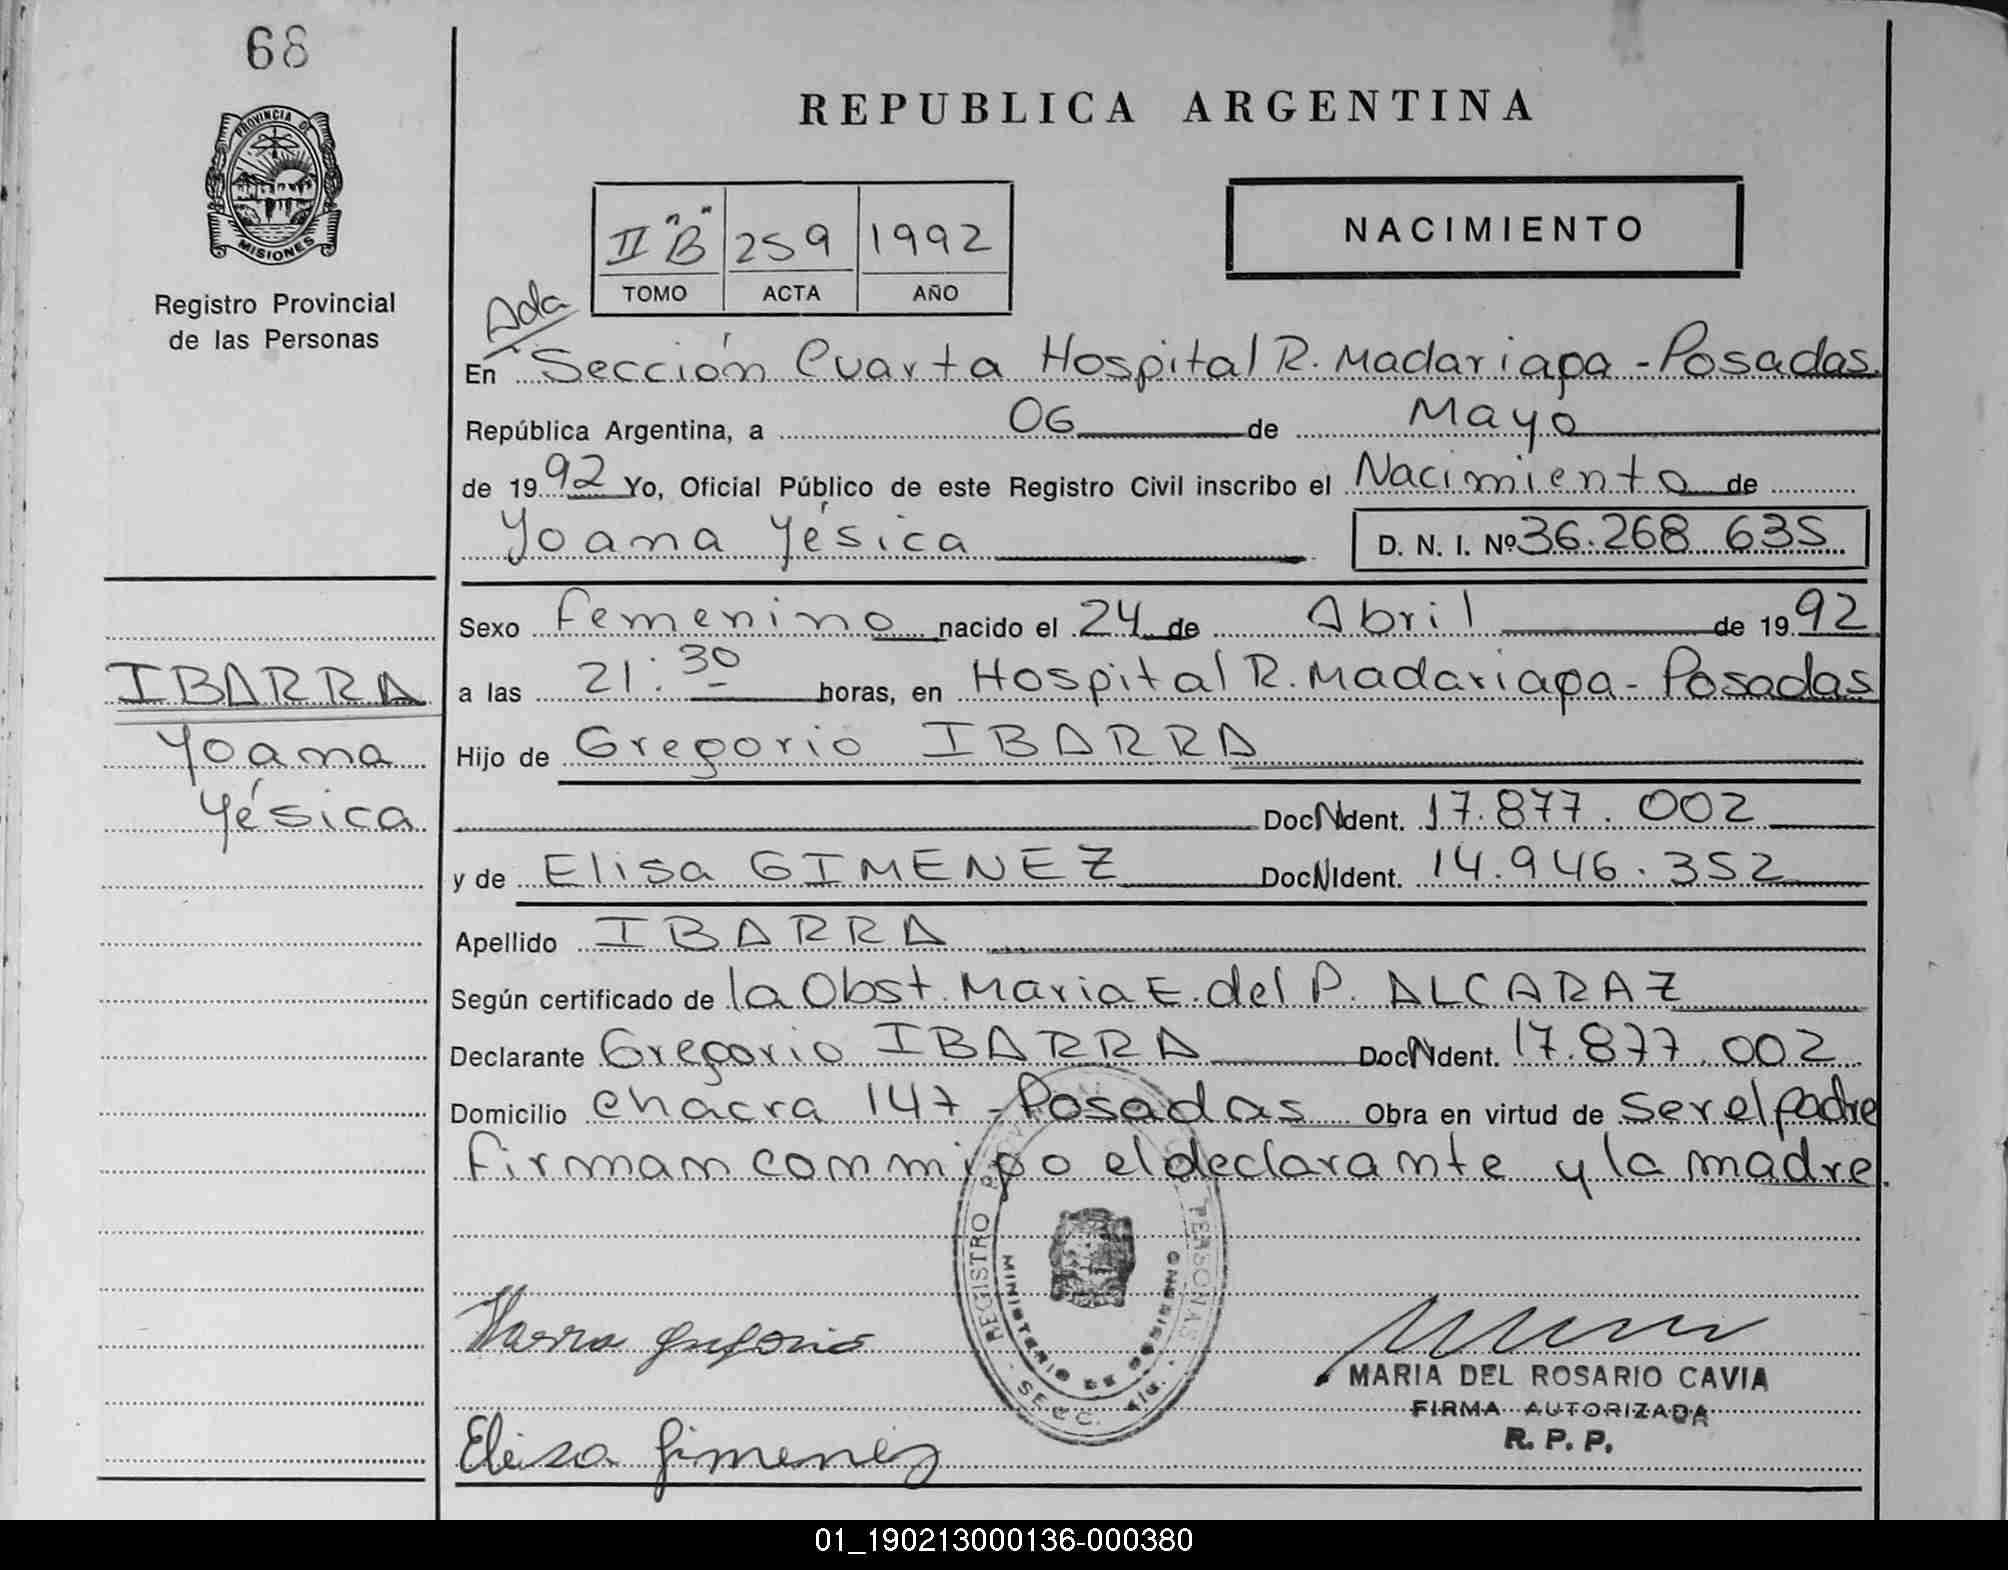 68
PROVINCIA DE
MISIONES
Registro Provincial
de las Personas
REPUBLICA ARGENTINA
NACIMIENTO
II "B" 259 1992
TOMO ACTA AÑO
Ada
En Sección Cuarta Hospital R. Madariaga - Posadas.
República Argentina, a 06 de Mayo
de 1992 Yo, Oficial Público de este Registro Civil inscribo el Nacimiento de
Yoana Yésica D. N. I. Nº 36.268.635
Sexo Femenino nacido el 24 de Abril de 1992
a las 21:30 horas, en Hospital R. Madariaga - Posadas
Hijo de Gregorio IBARRA
Doc N Ident. 17.877.002
y de Elisa GIMENEZ Doc N Ident. 14.946.352
Apellido IBARRA
Según certificado de la Obst. Maria E. del P. ALCARAZ
Declarante Gregorio IBARRA Doc N Ident. 17.877.002
Domicilio chacra 147 - Posadas Obra en virtud de Ser el padre
firman conmigo el declarante y la madre.
IBARRA
Yoana
Yésica
Ibarra Gregorio
Elisa Gimenez
REGISTRO PERSONAS
MINISTERIO DE GOBIERNO
SECC. 4ta.
MARIA DEL ROSARIO CAVIA
FIRMA AUTORIZADA
R. P. P.
01_190213000136-000380